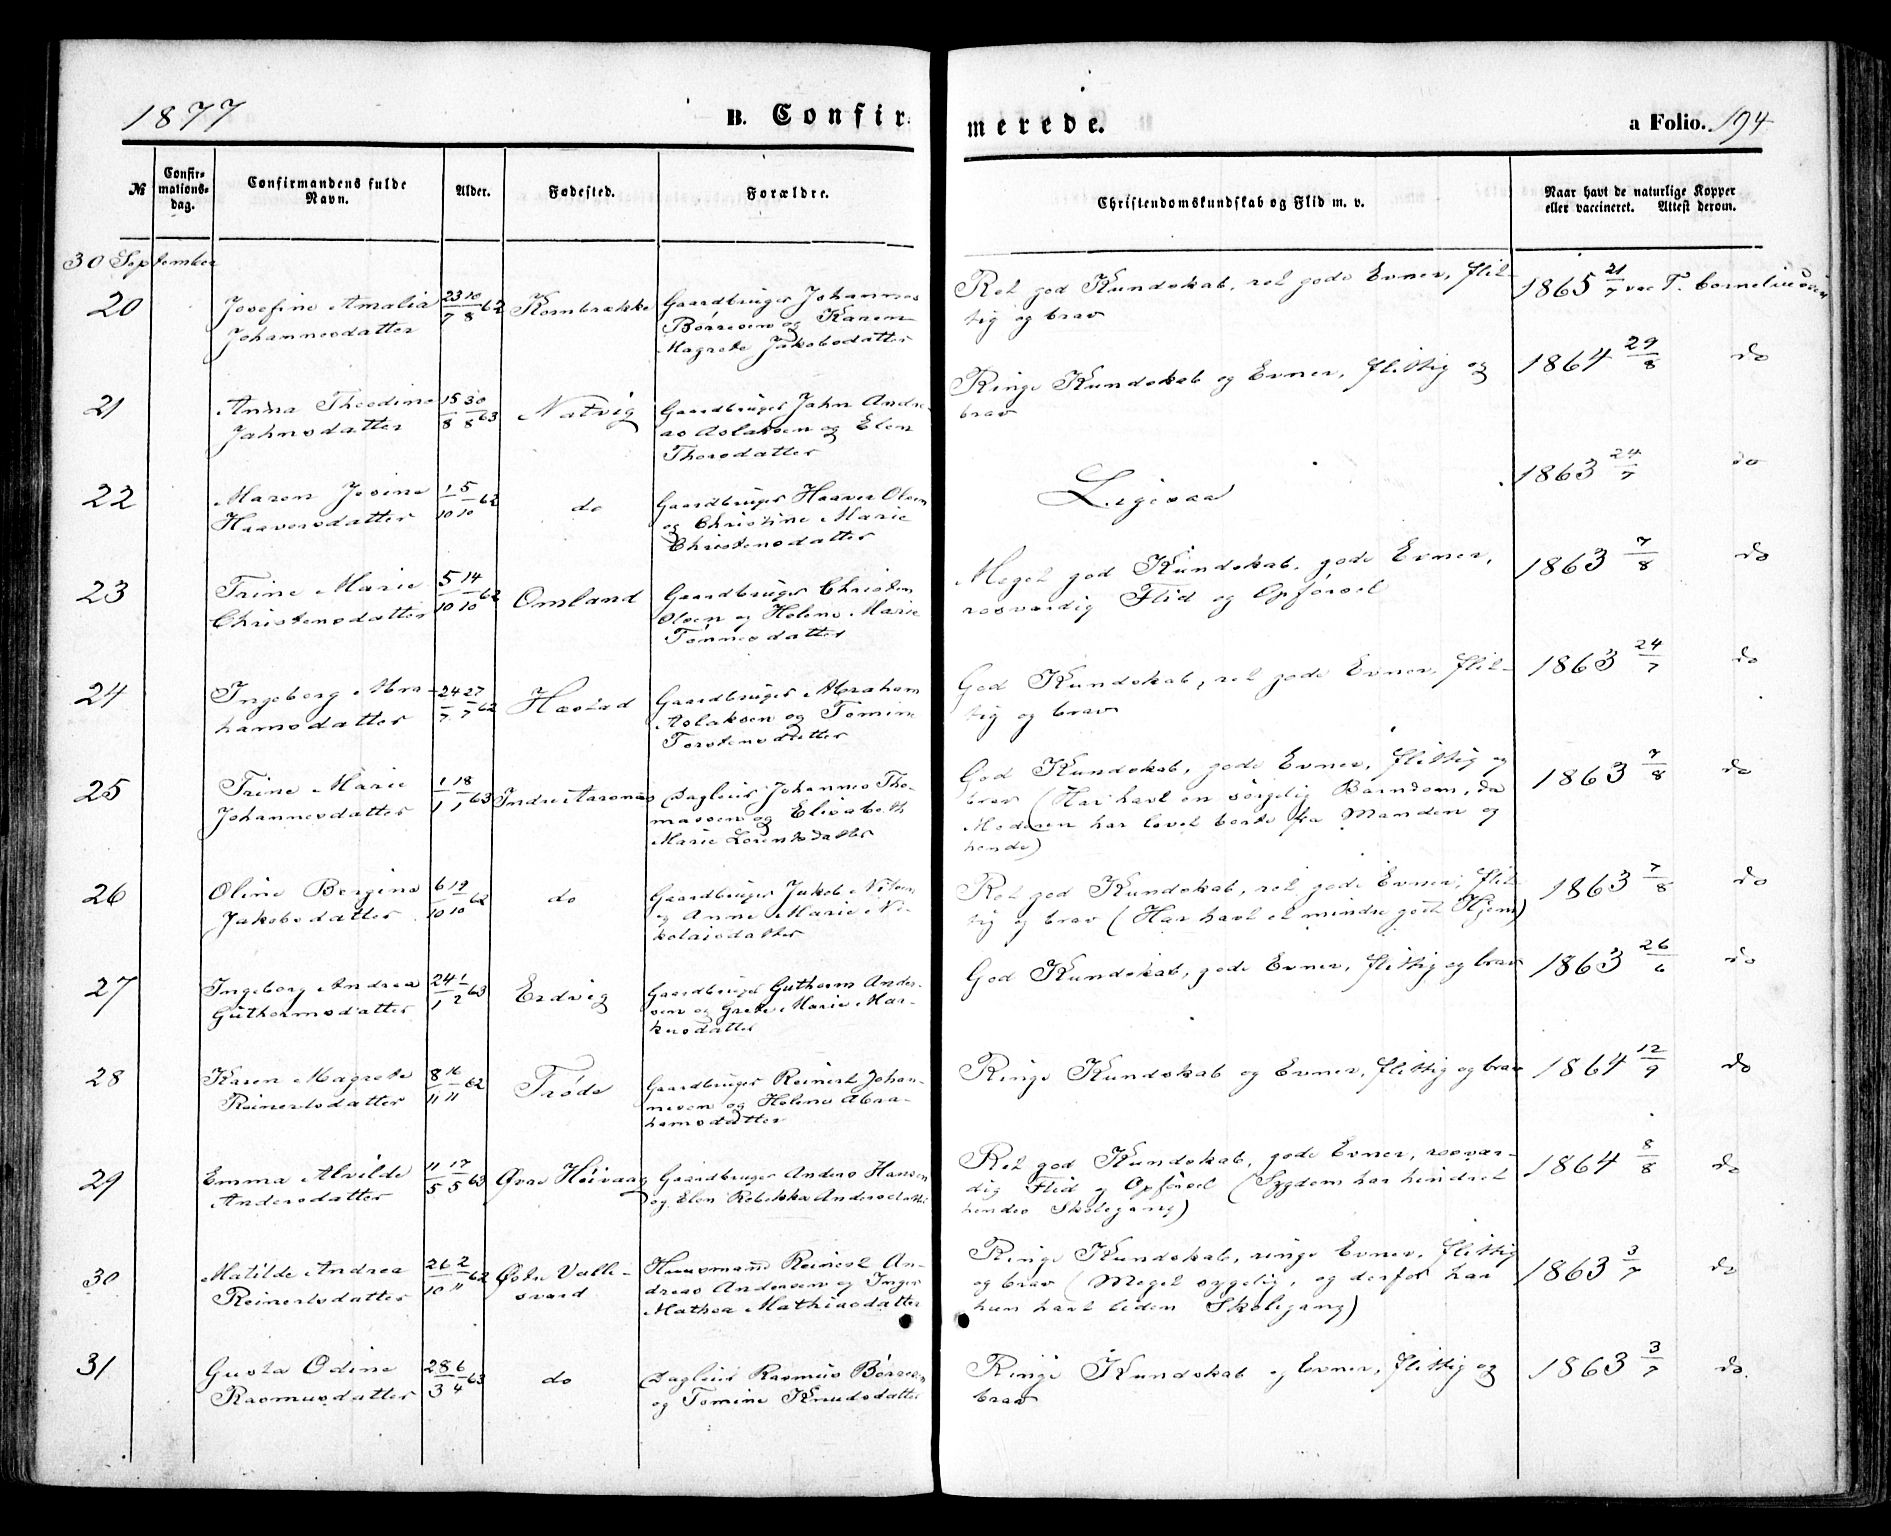 1877
B. Confir-
merede.
a Folio. 194
№
Confir-
mations-
dag.
Confirmandens fulde
Navn.
Alder.
Fødested.
Forældre.
Christendomskundskab og Flid m. v.
Naar havt de naturlige Kopper
eller vaccineret. Attest derom.
30 September
20
Josefine Amalia
Johannesdatter
23/7 10/8 62
Kornbrække
Gaardbruger Johannes
Börresen og Karen
Magrete Jakobsdatter
Ret god Kundskab, ret gode Evner, flit-
tig og brav
1865 21/7 vac T. Cornelius
21
Anna Theodine
Jahnsdatter
15/8 30/8 63
Natvig
Gaardbruger Jahn Andre-
as Aslaksen og Elen
Thorsdatter
Ringe Kundskab og Evner, flittig og
brav
1864 29/8 do
22
Maren Josine
Haaversdatter
1/10 5/10 62
do
Gaardbruger Haaver Olsen
og Christine Marie
Christensdatter
Ligesaa
1863 24/7 do
23
Trine Marie
Christensdatter
5/10 14/10 62
Omland
Gaardbruger Christen
Olsen og Helene Marie
Tönnesdatter
Meget god Kundskab, gode Evner,
rosværdig Flid og Opförsel
1863 7/8 do
24
Ingeborg Abra-
hamsdatter
24/7 27/7 62
Hæstad
Gaardbruger Abraham
Aslaksen og Tomine
Torstensdatter
God Kundskab, ret gode Evner, flit-
tig og brav
1863 24/7 do
25
Trine Marie
Johannesdatter
1/1 18/1 63
Indre Aarsnes
Dagleier Johannes Tho-
massen og Elisabeth
Marie Lorentsdatter
God Kundskab, gode Evner, flittig og
brav (Har havt en sörgelig Barndom, da
Moderen har levet borte fra Manden og
hende)
1863 7/8 do
26
Oline Bergine
Jakobsdatter
6/10 19/10 62
do
Gaardbruger Jakob Nilsen
og Anne Marie Ni-
kolaisdatter
Ret god Kundskab, ret gode Evner, flit-
tig og brav (Har havt et mindre godt Hjem)
1863 7/8 do
27
Ingeborg Andrea
Guthormsdatter
24/1 1/2 63
Erdvig
Gaardbruger Guthorm Ander-
sen og Grete Marie Mar-
kusdatter
God Kundskab, gode Evner, flittig og brav
1863 26/6 do
28
Karen Magrete
Reinertsdatter
8/11 16/11 62
Tröde
Gaardbruger Reinert Johan-
nesen og Helene Abra-
hamsdatter
Ringe Kundskab og Evner, flittig og brav
1864 12/9 do
29
Emma Alvilde
Andersdatter
11/5 17/5 63
Øvre Höivaag
Gaardbruger Anders Hansen
og Elen Rebekka Andersdatter
Ret god Kundskab, gode Evner, rosvær-
dig Flid og Opförsel (Sygdom har hindret
hendes Skolegang)
1864 8/8 do
30
Matilde Andrea
Reinertsdatter
26/10 2/11 62
Østre Valle-
sværd
Huusmand Reinert An-
dreas Andersen og Inger
Mathea Mathiasdatter
Ringe Kundskab, ringe Evner, flittig
og brav (Meget sygelig, og derfor har
hun havt liden Skolegang)
1863 3/7 do
31
Gusta Odine
Rasmusdatter
28/3 6/4 63
do
Dagleier Rasmus Börresen
og Tomine Knudsdatter
Ringe Kundskab og Evner, flittig og
brav
1863 3/7 do.